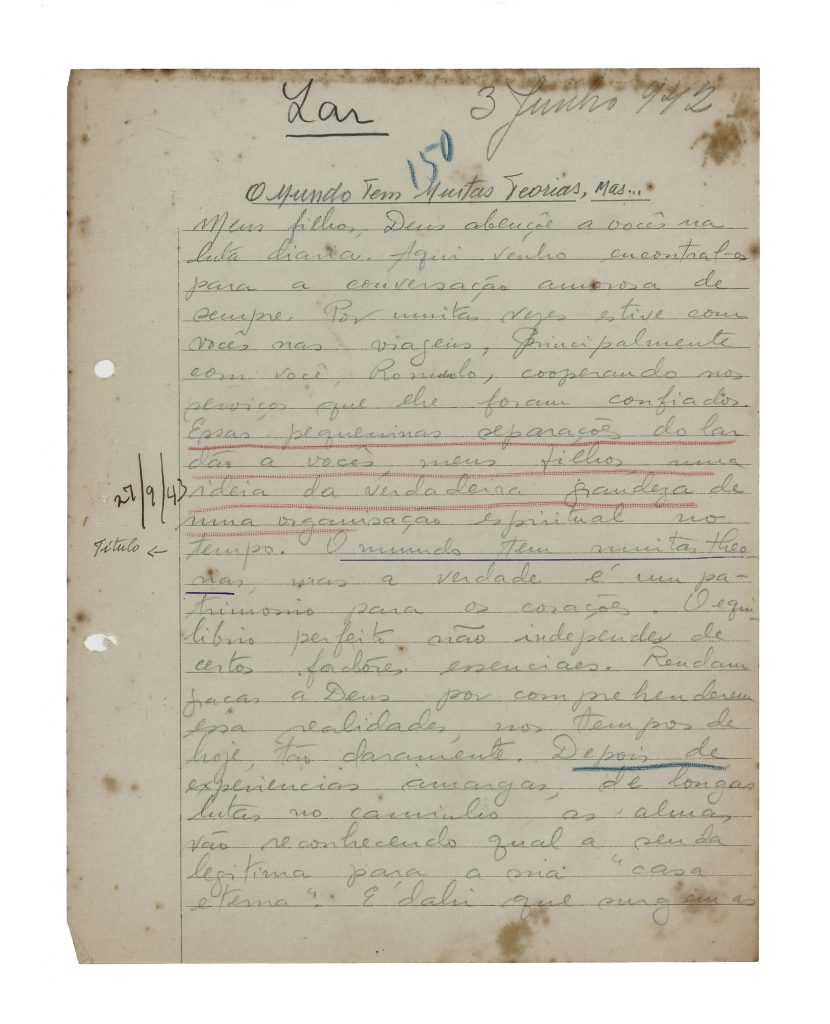 Lar
3 Junho 942
150
O Mundo Tem Muitas Teorias, Mas...
Meus filhos, Deus abençõe a vocês na
luta diaria. Aqui venho encontral-os
para a conversação amorosa de
sempre. Por muitas vezes estive com
vocês nas viagens, principalmente
com você, Romulo, cooperando nos
serviços que lhe foram confiados.
Essas pequeninas separações do lar
dão a vocês, meus filhos uma
ideia da verdadeira grandeza de
uma organisação espiritual no
tempo. O mundo tem muitas theo-
rias, mas a verdade é um pa-
trimonio para os corações. O equi-
librio perfeito não independe de
certos factôres essenciaes. Rendam
graças a Deus por comprehenderem
essa realidade, nos tempos de
hoje, tão claramente. Depois de
experiencias amargas, de longas
lutas no caminho, as almas
vão reconhecendo qual a senda
legitima para a sua "casa
eterna". E' dahi que surgem as
27/9/43
Titulo ←